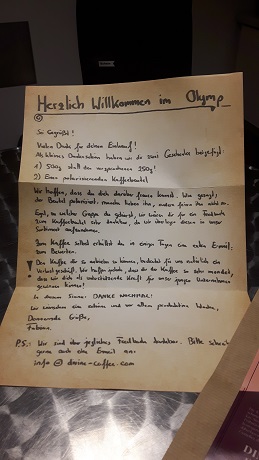 Herzlich Willkommen im Olymp
Sei Gegrüßt!
Vielen Dank für deinen Einkauf!
Als kleines Dankeschön haben wir dir zwei Geschenke beigefügt:
1) 500g statt der versprochenen 250g!
2) Einen polarisierenden Kaffeebeutel
Wir hoffen, dass du dich darüber freuen kannst. Wie gesagt,
der Beutel polarisiert: manche lieben ihn, andere feiern ihn nicht so.
Egal, zu welcher Gruppe du gehörst, wir wären dir für ein Feedback
zum Kaffeebeutel sehr dankbar, da wir überlegen diesen in unser
Sortiment aufzunehmen.
Zum Kaffee selbst erhältst du in einigen Tagen eine extra E-mail.
zum Bewerten.
Den Kaffee dir so anbieten zu können, bedeutet für uns natürlich ein
Verlustgeschäft. Wir hoffen jedoch, dass dir der Kaffee so sehr mundet,
dass wir dich als unterstützende Kraft für unser junges Unternehmen
gewinnen können!
In diesem Sinne: DANKE NOCHMAL!
Wir wünschen eine schöne und vor allem produktive Woche,
Donnernde Grüße,
Fabienne.
P.S.: Wir sind über jegliches Feedback dankbar. Bitte
gerne auch eine Email an:
info@ -caffee.com